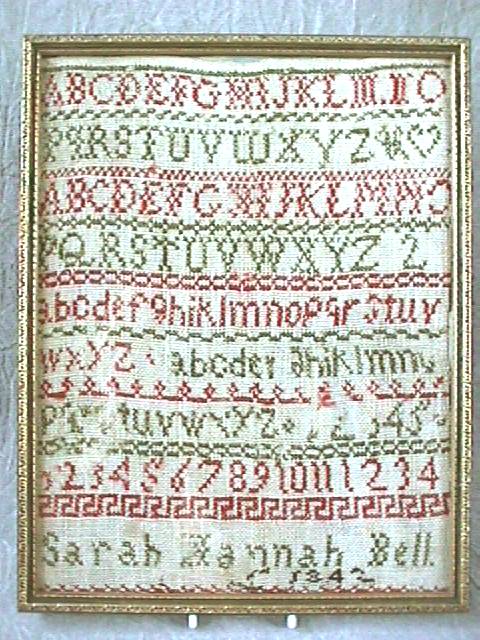 ABCDEFGHIJKLMNO
PQRSTUVWXYZ & ♡
ABCDEFGHIJKLMNO
PQRSTUVWXYZ 2
abcdefghiklmnopqrstuv
wxyz abcdef ghiklmno
p tuvwxyz 1 2 3 4 5
1 2 3 4 5 6 7 8 9 10 11 1 2 3 4
Sarah Hannah Bell
1842